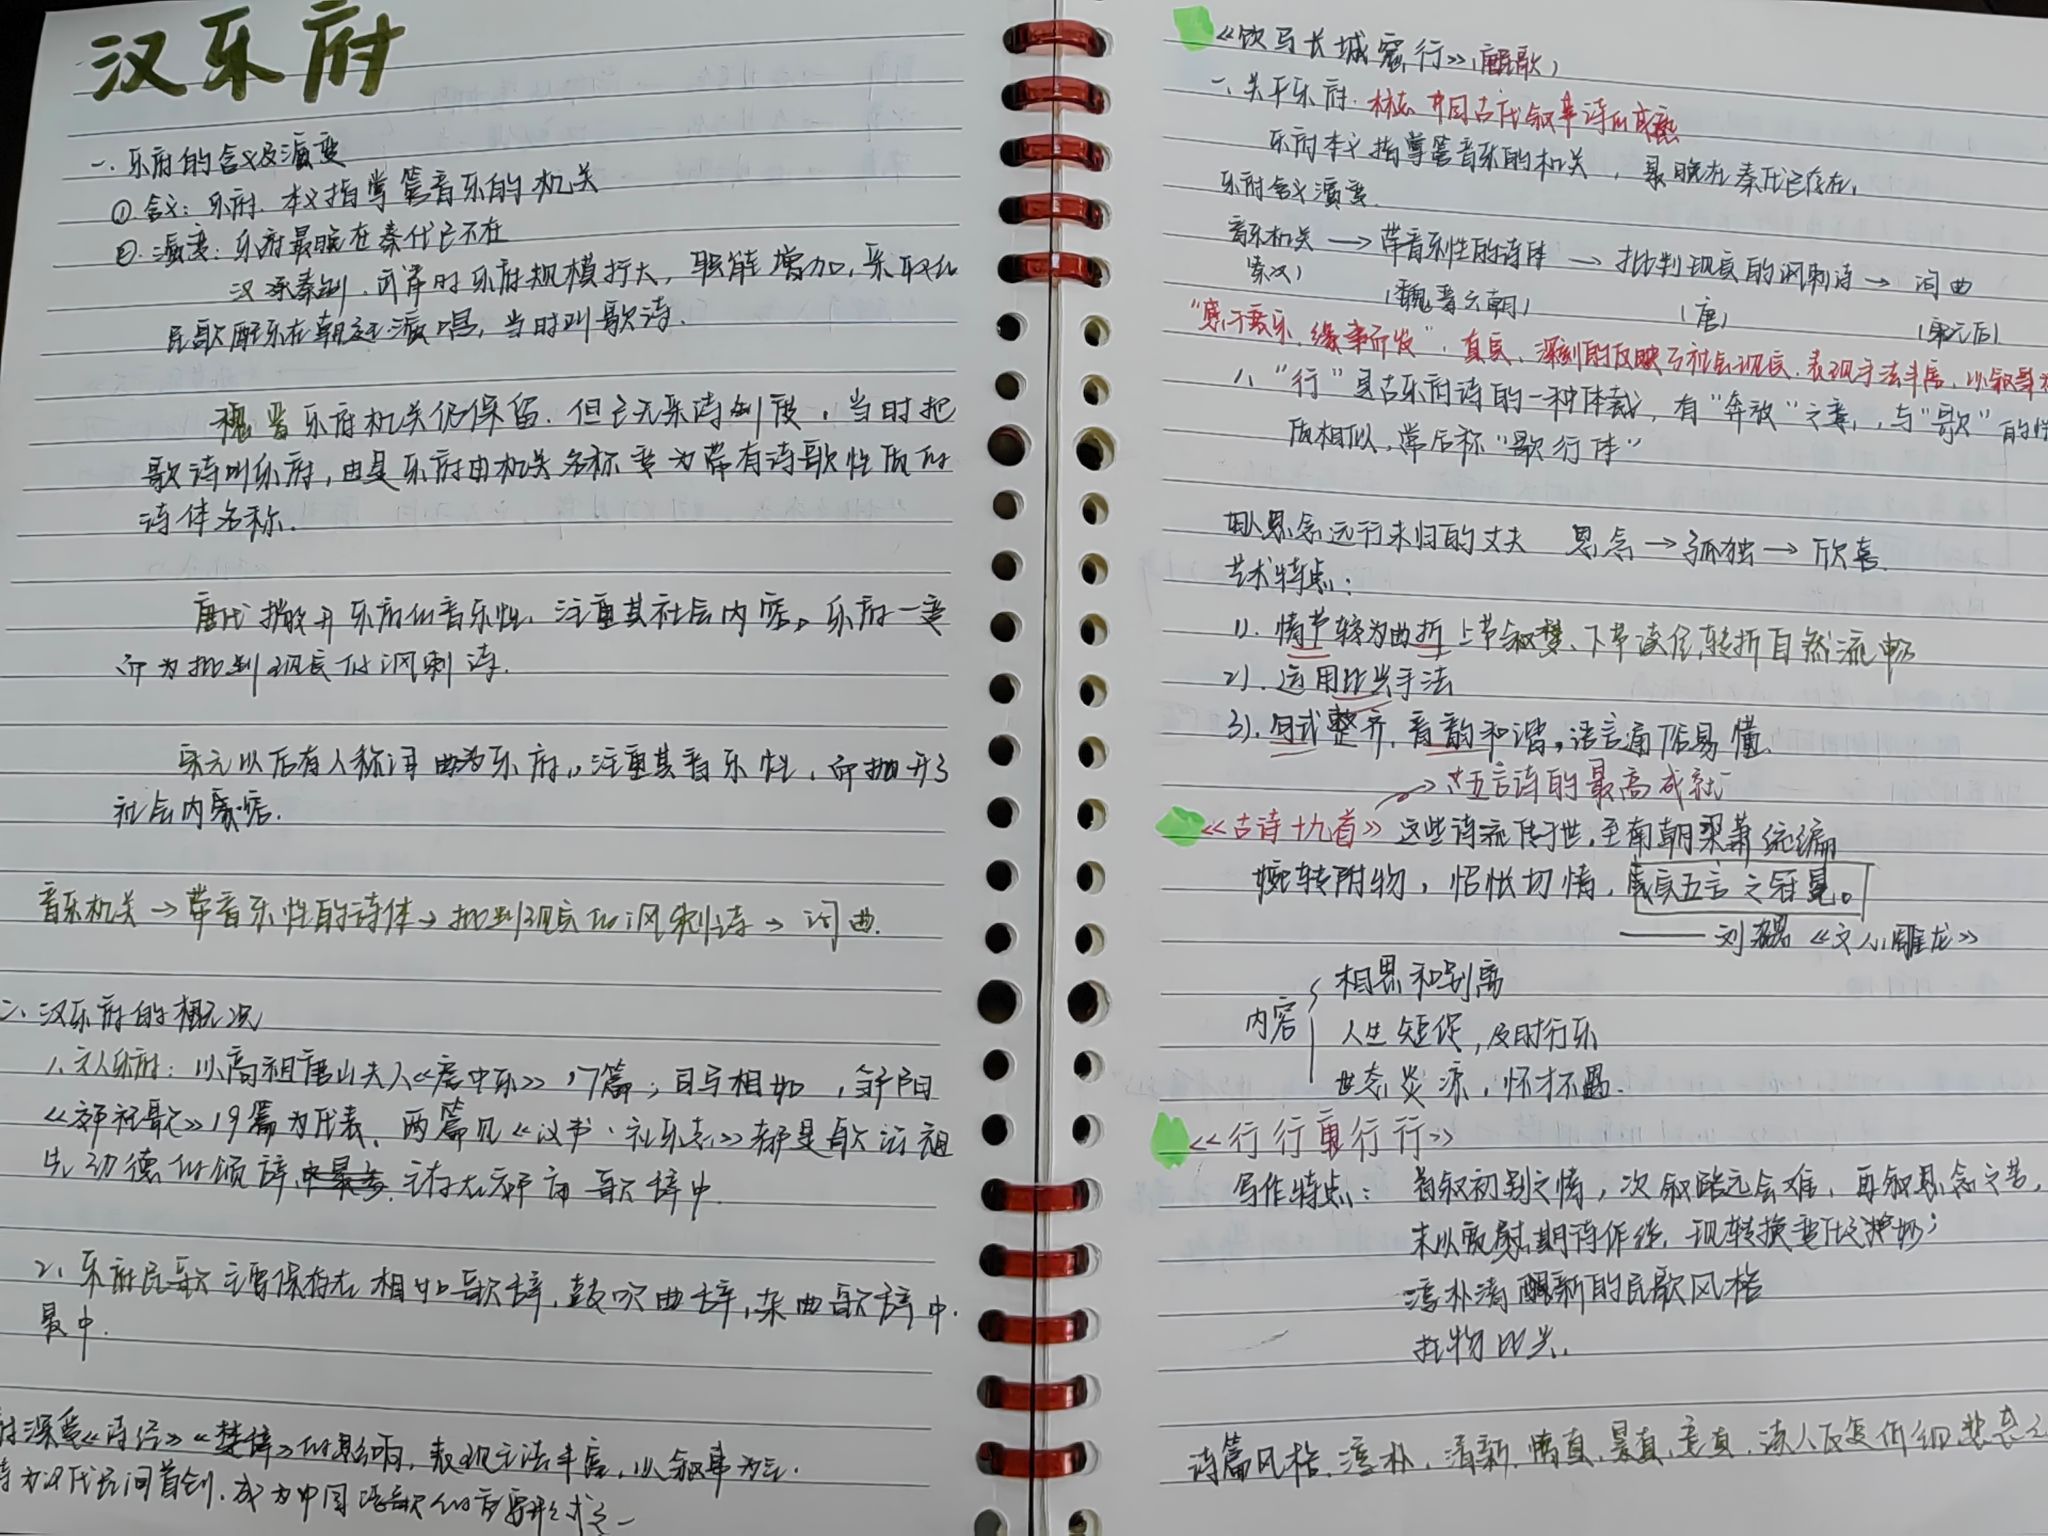 汉乐府
一、乐府的含义及演变
① 含义：乐府，本义指掌管音乐的机关
②. 演变：乐府最晚在秦代已不在
汉承秦制，武帝时乐府规模扩大，职能增加，采取
民歌配乐在朝廷演唱，当时叫歌诗．
魏晋乐府机关仍保留．但已无采诗制度，当时把
歌诗叫乐府，由是乐府由机关名称变为带有诗歌性质的
诗体名称．
唐代撇开乐府的音乐性，注重其社会内容。乐府一变
而为批判现实的讽刺诗．
宋元以后有人称词曲为乐府。注重其音乐性，而抛开了
社会内容．
音乐机关→带音乐性的诗体→批判现实的讽刺诗→词曲．
二、汉乐府的概况
1、文人乐府：以高祖唐山夫人《房中乐》17篇；司马相如，邹阳
《郊祀歌》19篇为代表，两篇见《汉书·礼乐志》都是歌
先功德的颂辞，主存在郊庙歌辞中．
2、乐府民歌主要保存在相和歌辞，鼓吹曲辞，杂曲歌辞中．
最中．
府深受《诗经》《楚辞》的影响，表现手法丰富，以叙事为主．
诗为汉代民间首创，成为中国诗歌的重要形式之一
《饮马长城窟行》（民歌）
一、关于乐府．标志中国古代叙事诗的成熟
乐府本义指掌管音乐的机关，最晚在秦代已存在，
乐府含义演变．
音乐机关→带音乐性的诗体→批判现实的讽刺诗→词曲
（秦汉）（魏晋六朝）（唐）（宋元后）
“感于哀乐，缘事而发”，真实、深刻的反映了社会现实，表现手法丰富，以叙事为
1、“行”是古乐府诗的一种体裁，有“奔放”之意，与“歌”的性
质相似，常后称“歌行体”
妇人思念远行未归的丈夫 思念→孤独→欣喜
艺术特点：
1）．情节较为曲折 上节叙梦、下节读信，转折自然流畅
2）．运用比兴手法
3）．句式整齐，音韵和谐，语言通俗易懂．
→五言诗的最高成就
《古诗十九首》这些诗流传于世，至南朝梁萧统编
婉转附物，怊怅切情，实五言之冠冕。
——刘勰《文心雕龙》
相思和别离
内容 人生短促，及时行乐
世态炎凉，怀才不遇．
《行行重行行》
写作特点：首叙初别之情，次叙路远会难，再叙思念之苦，
末以宽慰期待作结．现转换变化之妙；
淳朴清新的民歌风格
托物比兴．
诗篇风格，淳朴，清新，情真，景真，意真，读人反复低徊，悲